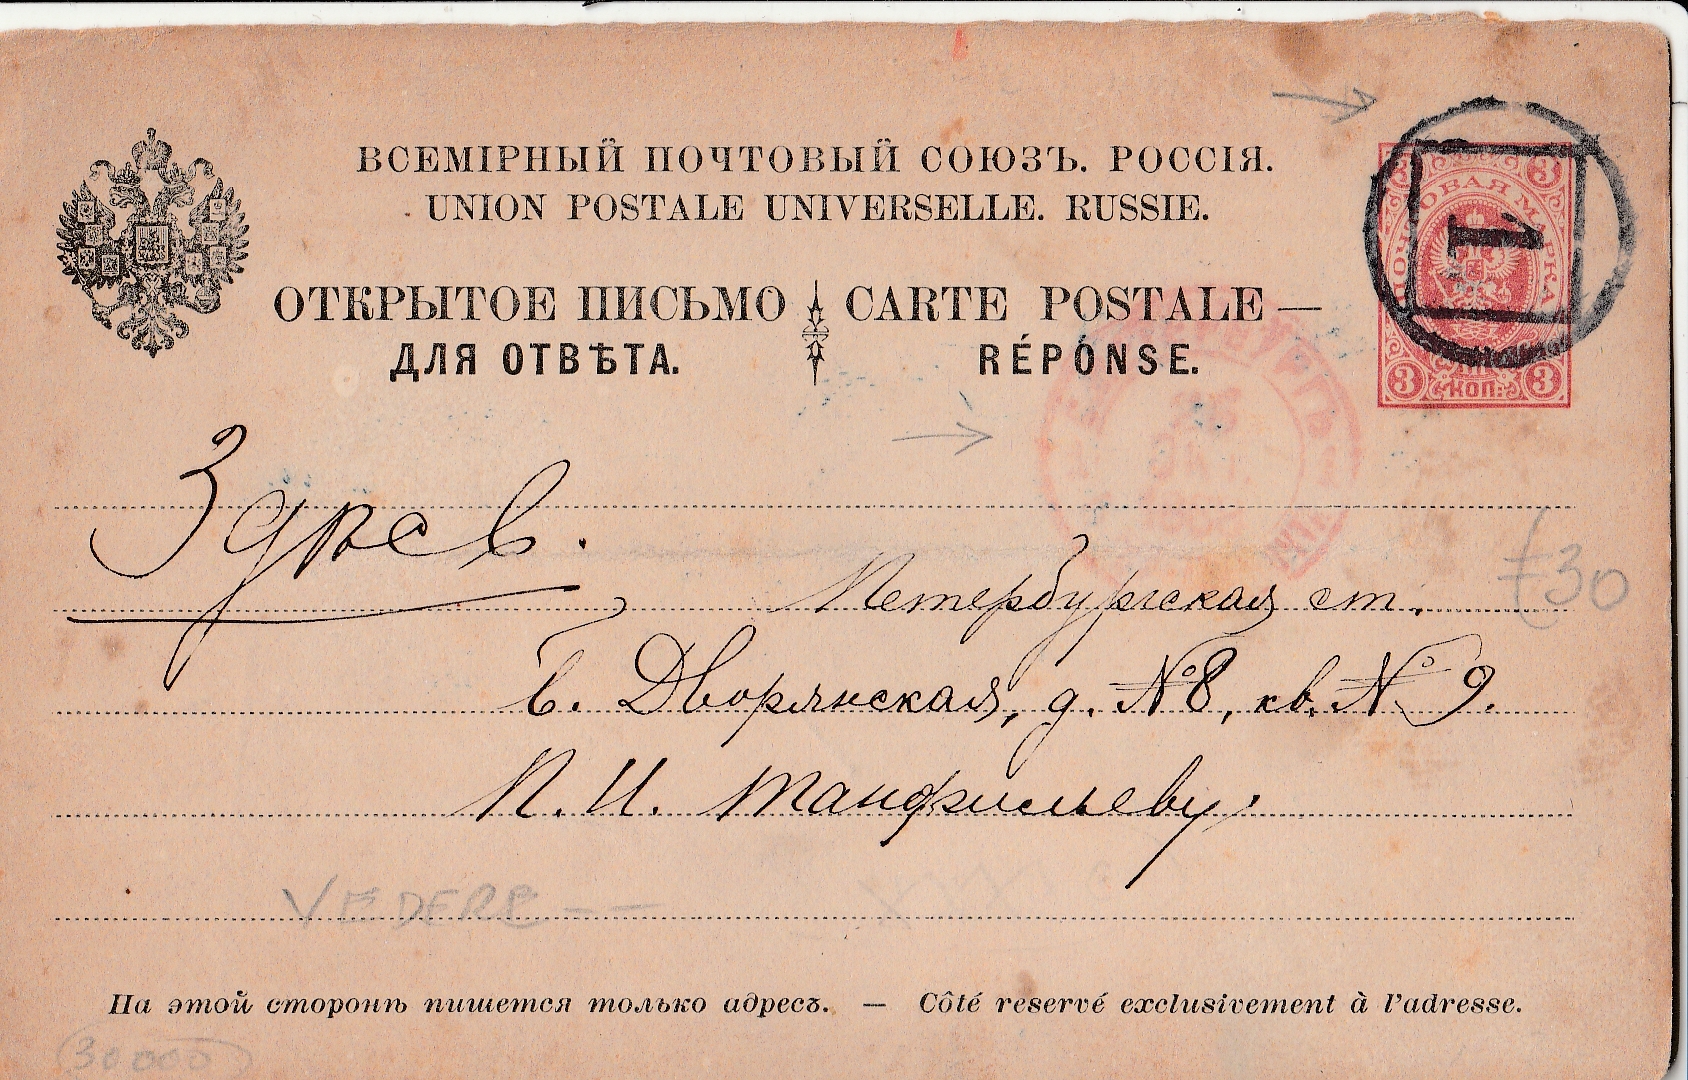 ВСЕМІРНЫЙ ПОЧТОВЫЙ СОЮЗЪ. РОССІЯ.
UNION POSTALE UNIVERSELLE. RUSSIE.
ОТКРЫТОЕ ПИСЬМО CARTE POSTALE —
ДЛЯ ОТВѢТА. RÉPONSE.
ПОЧТОВАЯ МАРКА
3 3
1
3 КОП: 3
Здѣсь.
Петербургская ст.
Б. Дворянская, д. №8, кв. № 9.
П. И. Танфильеву.
£30
VEDERE --
На этой сторонѣ пишется только адресъ. — Côté reservé exclusivement à l'adresse.
30000